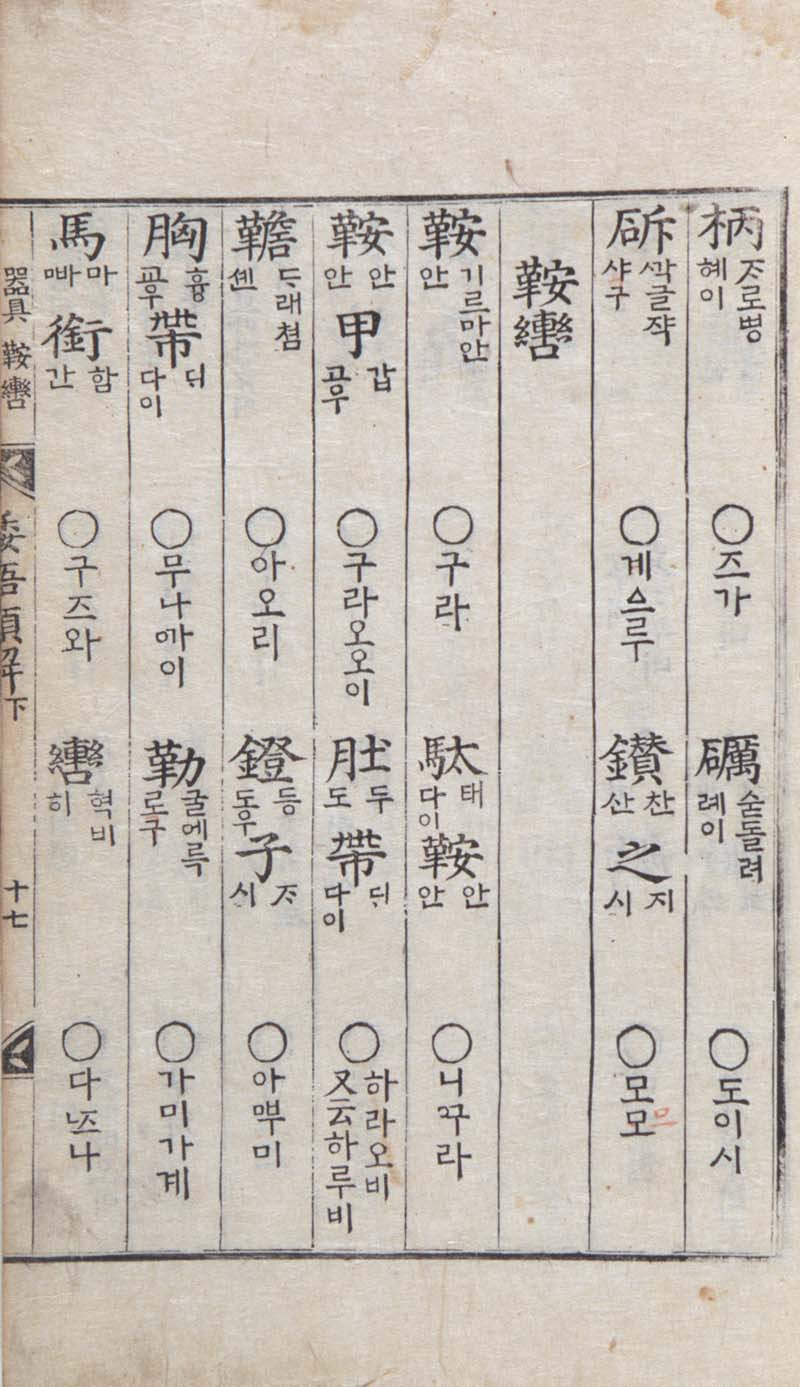 柄 ᄌᆞ로병 혜이 ○즈가 礪 숫돌려 례이 ○도이시
斫 ᄭᅡᆨ글쟉 샤구 ○게ᅀᅳ루 鑚 찬 산 之 지 시 ○모모
鞍轡
鞍 기르마안 안 ○구라 駄 태 다이 鞍 안 안 ○니ᄭᅮ라
鞍 안 안 甲 갑 ○구라오오이 肚 두 도 帶 ᄃᆡ 다이 ○하라오비 又云하루비
韂 ᄃᆞ래쳠 셴 ○아오리 鐙 등 도우 子 ᄌᆞ 시 ○아ᄲᅮ미
胸 흉 帶 ᄃᆡ 다이 ○무나ᄭᅡ이 勒 굴에륵 로구 ○가미가계
馬 마 ᄲᅡ 銜 함 간 ○구즈와 轡 혁비 히 ○다ᄂᆞ즈나
器具 鞍轡 倭語類解下 十七